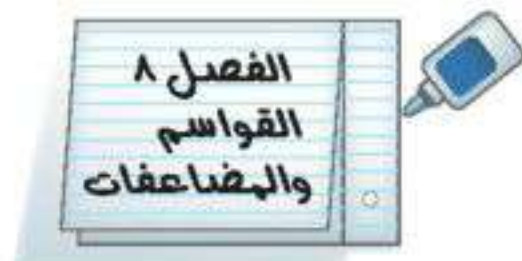 الفصل ٨
القواسم
والمضاعفات